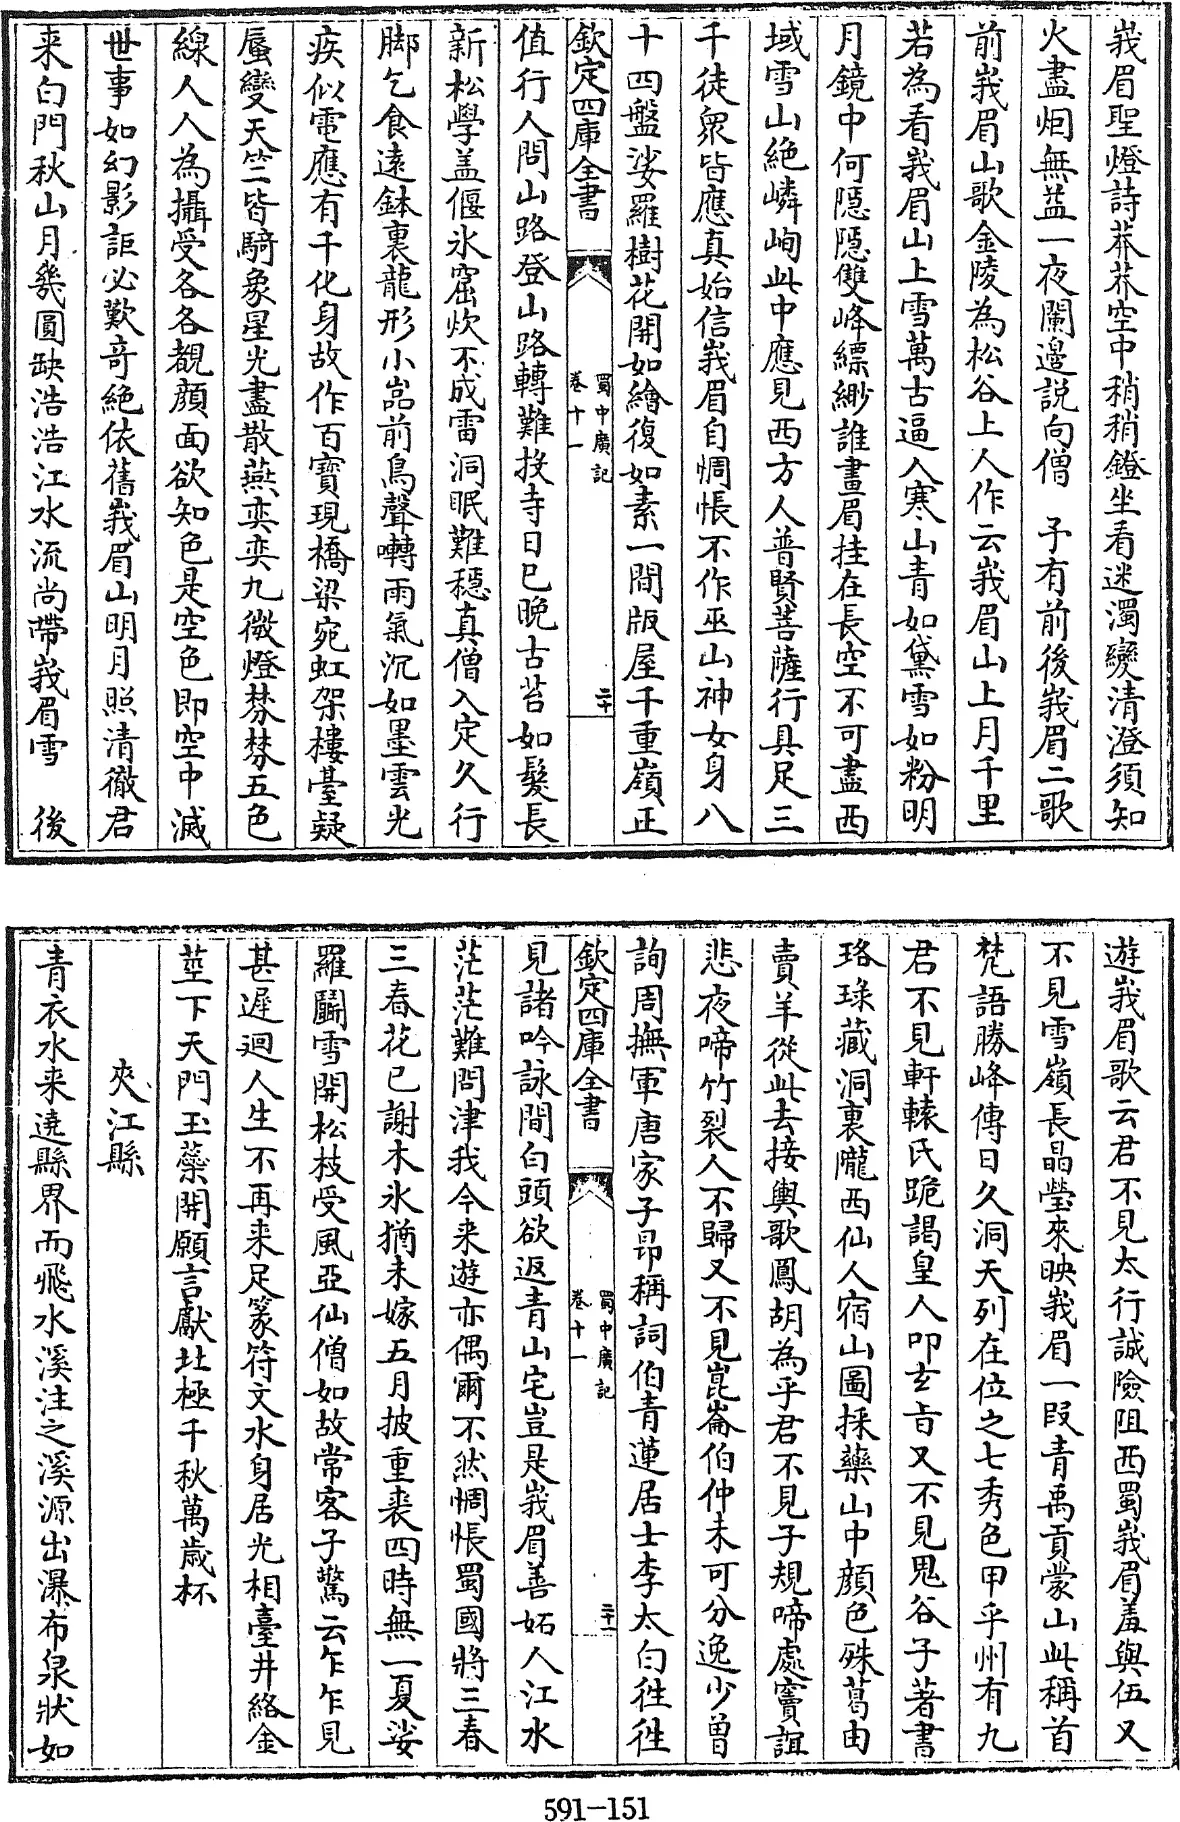 峩眉聖燈詩莽莽空中稍稍鐙坐看迷濁變清澄須知
火盡烟無益一夜闌邊説向僧　予有前後峩眉二歌
前峩眉山歌金陵為松谷上人作云峩眉山上月千里
若為看峩眉山上雪萬古逼人寒山青如黛雪如粉明
月鏡中何隱隱雙峰縹緲誰畫眉挂在長空不可盡西
域雪山絶嶙峋此中應見西方人普賢菩薩行具足三
千徒衆皆應真始信峩眉自惆悵不作巫山神女身八
十四盤娑羅樹花開如繪復如素一間版屋千重嶺正
欽定四庫全書　蜀中廣記　卷十一　二十
值行人問山路登山路轉難投寺日已晚古苔如髮長
新松學盖偃氷窟炊不成雷洞眠難穩真僧入定久行
脚乞食遠鉢裏龍形小嵓前鳥聲囀雨氣沉如墨雲光
疾似電應有千化身故作百寶現橋梁宛虹架樓臺疑
蜃變天竺皆騎象星光盡散燕奕奕九微燈棼棼五色
線人人為攝受各各覩顔面欲知色是空色即空中滅
世事如幻影詎必歎竒絶依舊峩眉山明月照清徹君
来白門秋山月幾圓缺浩浩江水流尚帶峩眉雪　後
遊峩眉歌云君不見太行誠險阻西蜀峩眉羞與伍又
不見雪嶺長晶瑩來映峩眉一段青禹貢蒙山此稱首
梵語勝峰傳日久洞天列在位之七秀色甲乎州有九
君不見軒轅氏跪謁皇人叩玄㫖又不見鬼谷子著書
珞琭藏洞裏隴西仙人宿山圖採藥山中顔色殊葛由
賣羊從此去接輿歌鳳胡為乎君不見子規啼處竇誼
悲夜啼竹裂人不歸又不見崑崙伯仲未可分逸少曽
詢周撫軍唐家子昻稱詞伯青蓮居士李太白徃徃
欽定四庫全書　蜀中廣記　卷十一　二十一
見諸吟詠間白頭欲返青山宅豈是峩眉善妬人江水
茫茫難問津我今来遊亦偶爾不然惆悵蜀國將三春
三春花已謝木氷猶未嫁五月披重裘四時無一夏娑
羅鬭雪開松枝受風亞仙僧如故常客子驚云乍乍見
甚遲迴人生不再来足篆符文水身居光相臺井絡金
莖下天門玉蘂開願言獻北極千秋萬歲杯
夾江縣
青衣水来遶縣界而飛水溪注之溪源出瀑布泉狀如
591-151